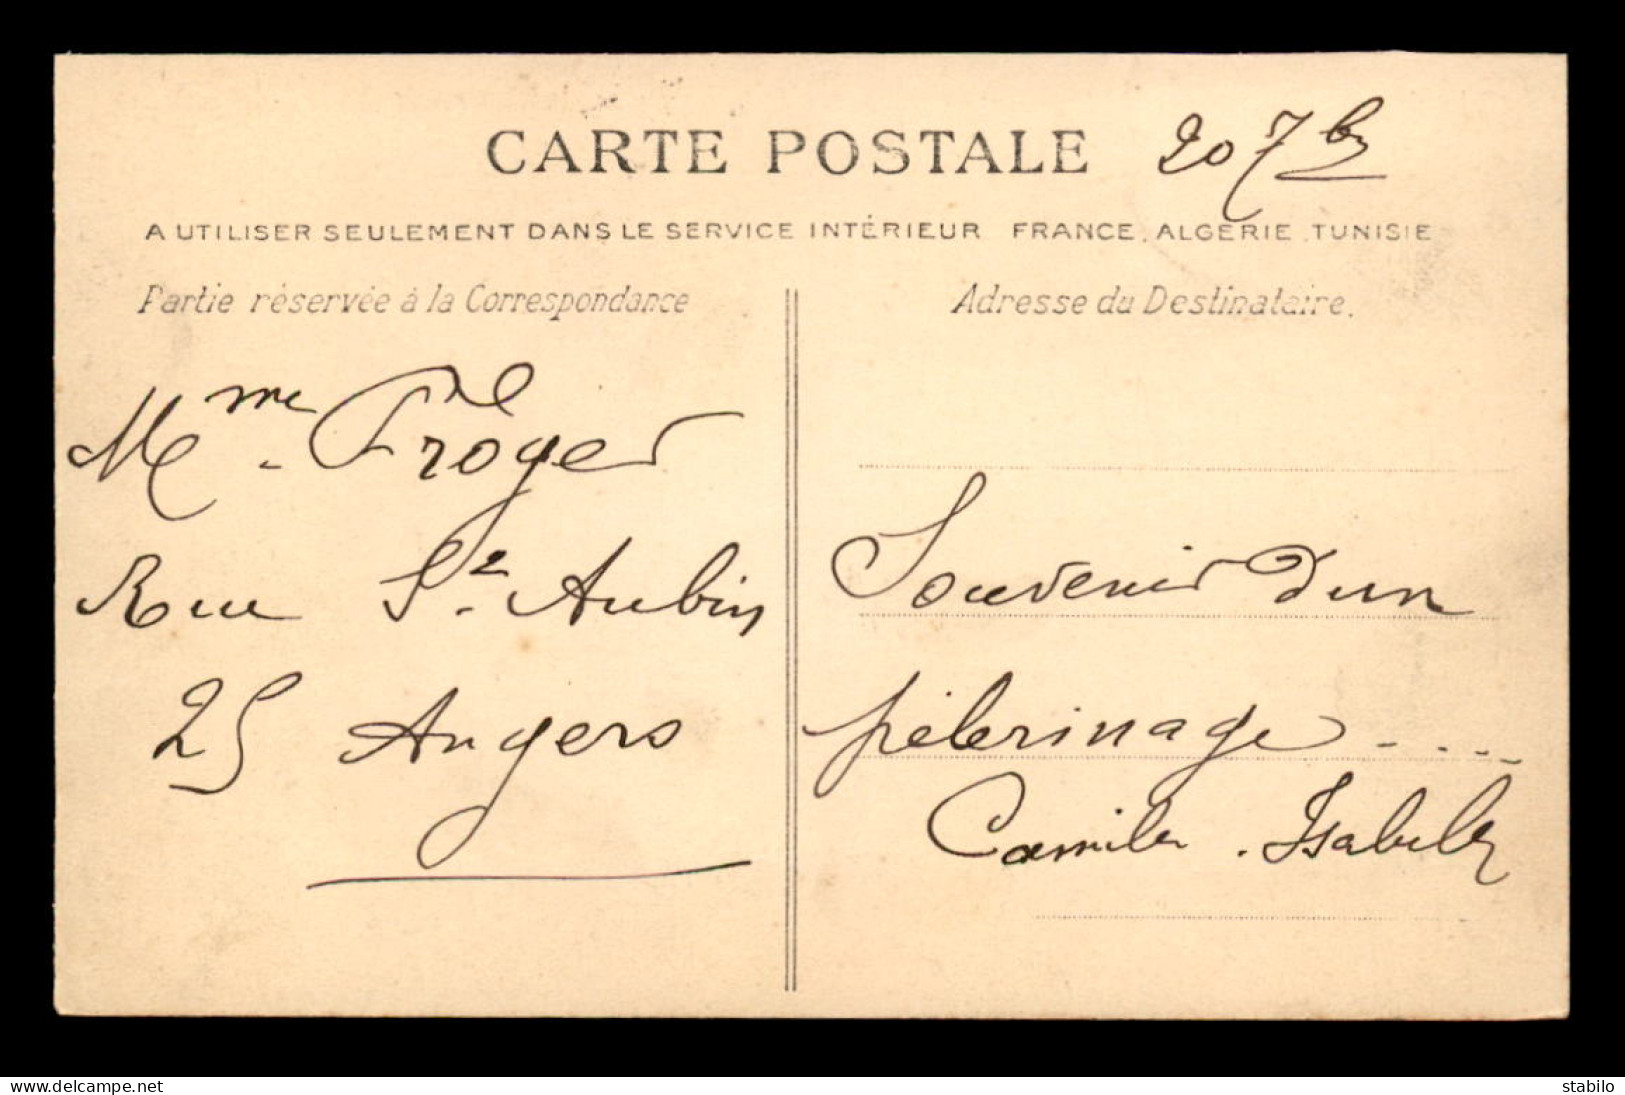 CARTE POSTALE 20 7bre
A UTILISER SEULEMENT DANS LE SERVICE INTÉRIEUR FRANCE, ALGERIE, TUNISIE
Partie réservée à la Correspondance
Adresse du Destinataire.
Mme Froger
Rue St Aubin
25 Angers
Souvenir d'un
pèlerinage - . . . .
Camille . Isabelle
www.delcampe.net
stabilo